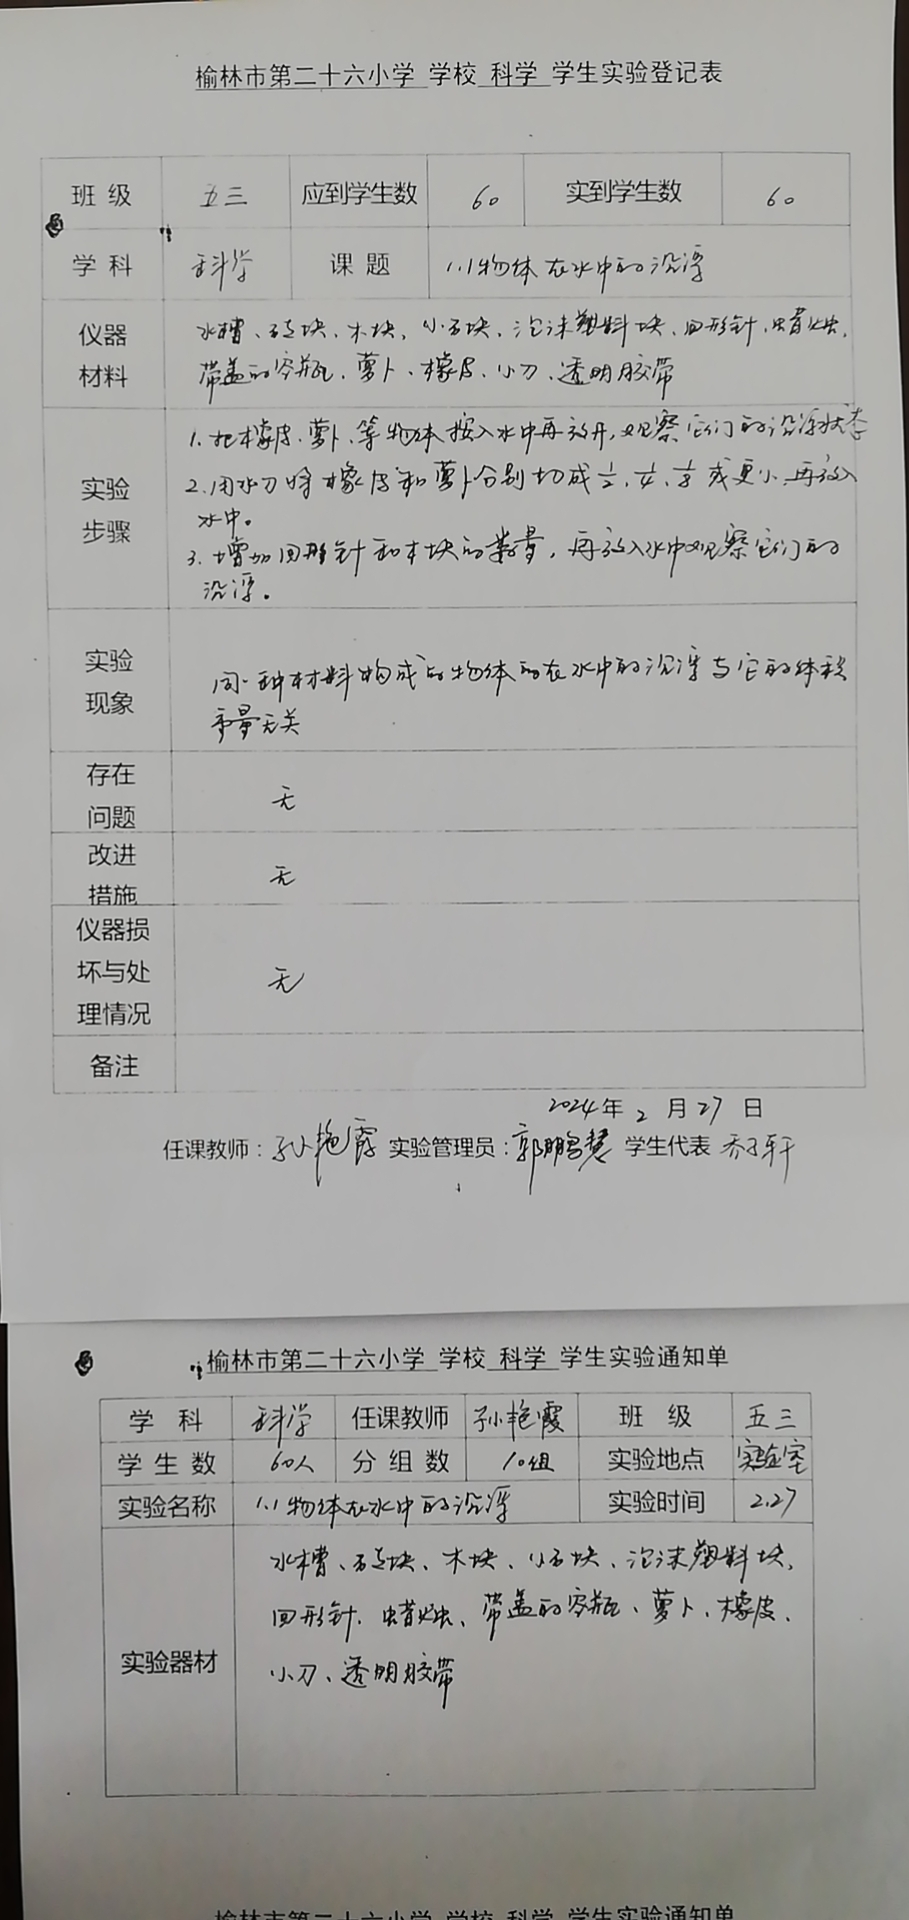 榆林市第二十六小学 学校 科学 学生实验登记表
班级 五三 应到学生数 60 实到学生数 60
学科 科学 课题 1.1物体在水中的沉浮
仪器材料 水槽、砖块、木块、小石块、泡沫塑料块、回形针、蜡烛、
带盖的空瓶、萝卜、橡皮、小刀、透明胶带
实验步骤 1.把橡皮、萝卜、等物体按入水中再放开,观察它们的沉浮状态
2.用小刀将橡皮和萝卜分别切成½、¼、⅛或更小,再放入
水中。
3.增加回形针和木块的数量,再放入水中观察它们的
沉浮。
实验现象 同一种材料构成的物体的在水中的沉浮与它的体积
重量无关
存在问题 无
改进措施 无
仪器损坏与处理情况 无
备注
2024年2月27日
任课教师:孙艳霞 实验管理员:郭鹏慧 学生代表 乔子轩
榆林市第二十六小学 学校 科学 学生实验通知单
学科 科学 任课教师 孙艳霞 班级 五三
学生数 60人 分组数 10组 实验地点 实验室
实验名称 1.1物体在水中的沉浮 实验时间 2.27
实验器材 水槽、砖块、木块、小石块、泡沫塑料块、
回形针、蜡烛、带盖的空瓶、萝卜、橡皮、
小刀、透明胶带
榆林市第二十六小学 学校 科学 学生实验通知单